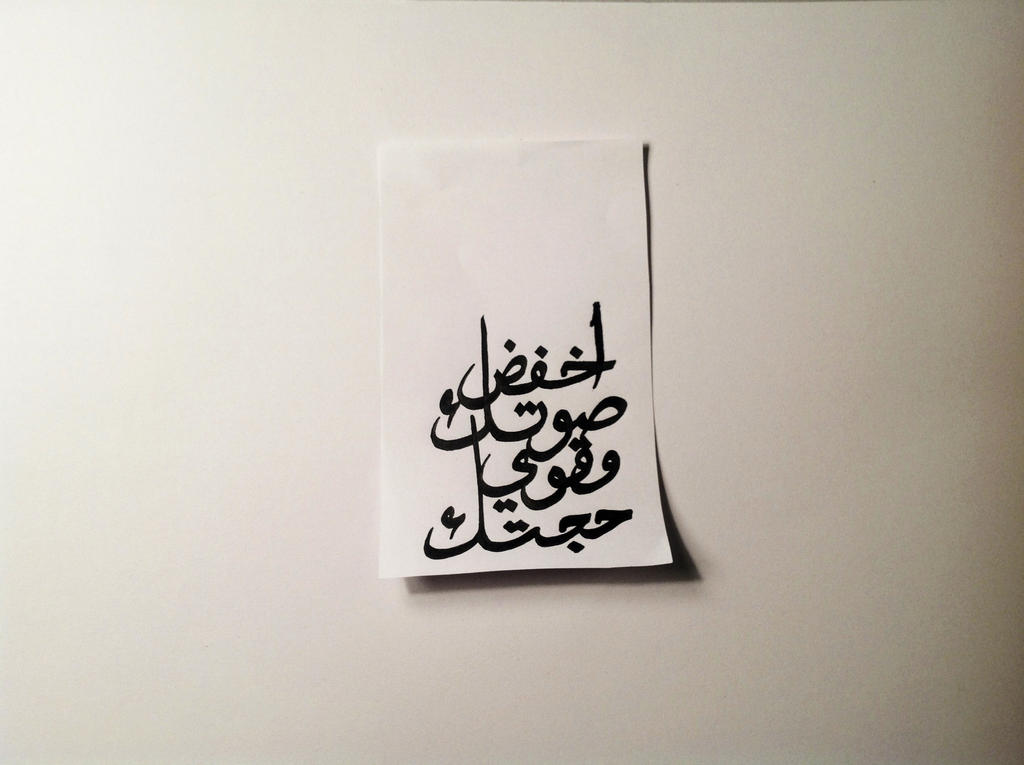 اخفض
صوتك
وقوي
حجتك